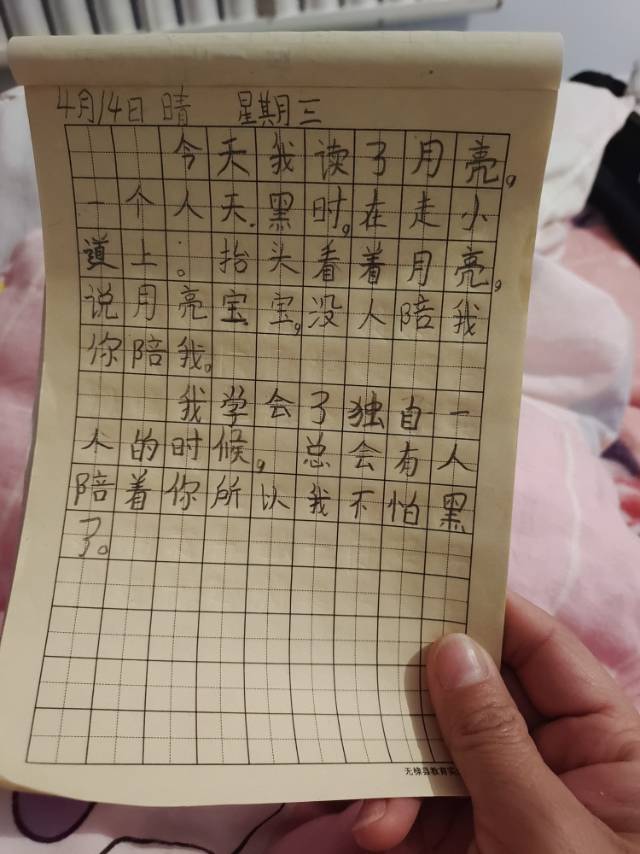 4月14日 晴 星期三
今天我读了月亮。
一个人天.黑时。在走小
道上。抬头看着月亮。
说月亮宝宝。没人陪我
你陪我。
我学会了独自一
人的时候。总会有人
陪着你所以我不怕黑
了。
无棣县教育实